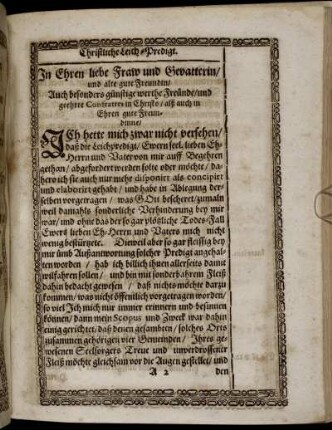 Christliche Leich-Predigt.
In Ehren liebe Fraw und Gevatterin/
und alte gute Freundin/
Auch besonders günstige werthe Freunde/und
geehrte Confratres in Christo/ alß auch in
Ehren gute Freun-
dinne/
ICh hette mich zwar nicht versehen/
daß die Leichpredigt/ Ewern seel. lieben Eh-
Herrn und Vater von mir auff Begehren
gethan/ abgefordert werden solte oder möchte/ da-
hero ich sie auch nur mehr disponirt als concipirt
und elaborirt gehabt/ und habe in Ablegung der-
selben vorgetragen/ was GOtt bescheret/zumaln
weil damahls sonderliche Verhinderung bey mir
war/ und ohne das der so gar plötzliche Todes-Fall
Ewers lieben Eh-Herrn und Vaters mich nicht
wenig bestürtzete. Dieweil aber so gar fleissig bey
mir umb Außantwortung solcher Predigt angehal-
ten worden/ hab ich billich ihnen allerseits damit
wilfahren sollen/ und bin mit sonderbahrem Fleiß
dahin bedacht gewesen/ daß nichts möchte darzu
kommen/ was nicht öffentlich vorgetragen worden/
so viel Ich mich nur immer erinnern und besinnen
können/ dann mein Scopus und Zweck war dahin
einig gerichtet/ daß denen gesambten/ solches Orts
zusammen gehörigen vier Gemeinden/ Ihres ge-
wesenen Seelsorgers Treue und unverdrossener
Fleiß möchte gleichsam vor die Augen gestellet/ und
A 2 den